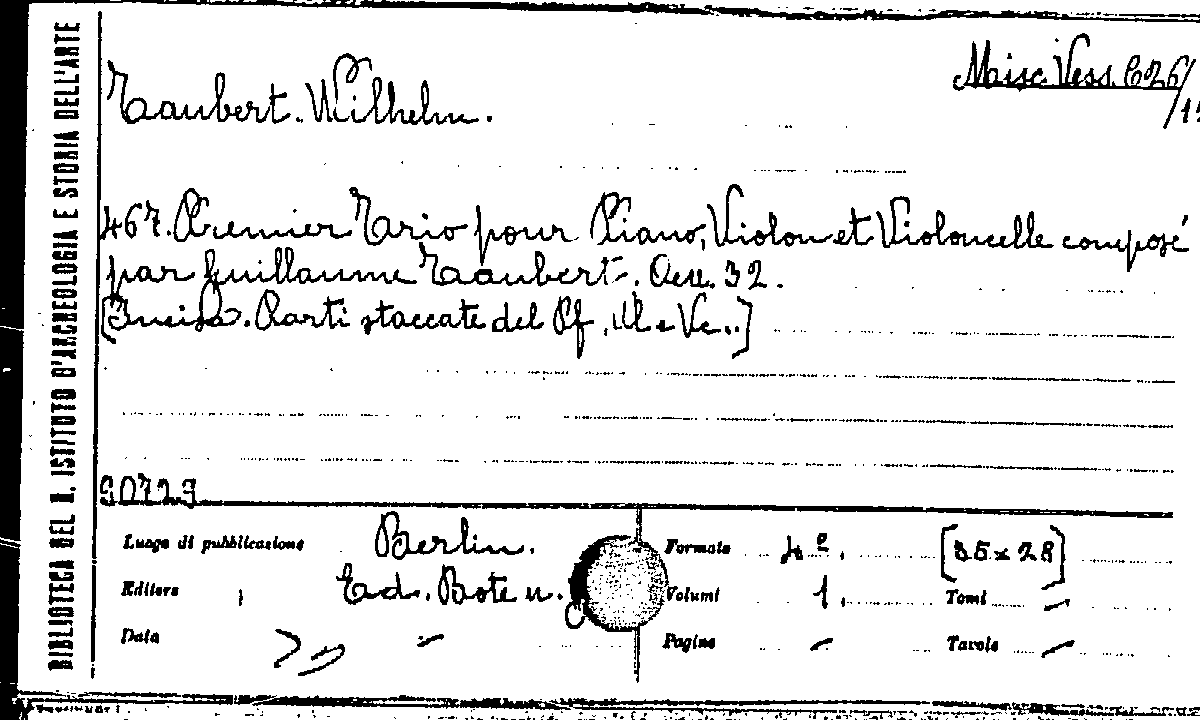 BIBLIOTECA DEL R. ISTITUTO D'ARCHEOLOGIA E STORIA DELL'ARTE
Misc. Vess. C26/
Taubert. Wilhelm.
467. Premier Trio pour Piano, Violon et Violoncelle composé
par Guillaume Taubert. Oeu. 32.
[Incisa. Parti staccate del Pf, Vl e Vc..]
90729
Luogo di pubblicazione Berlin. Formato 4º. [35 x 28]
Editore Ed. Bote u. Volumi 1. Tomi –
Data – Pagine – Tavole –